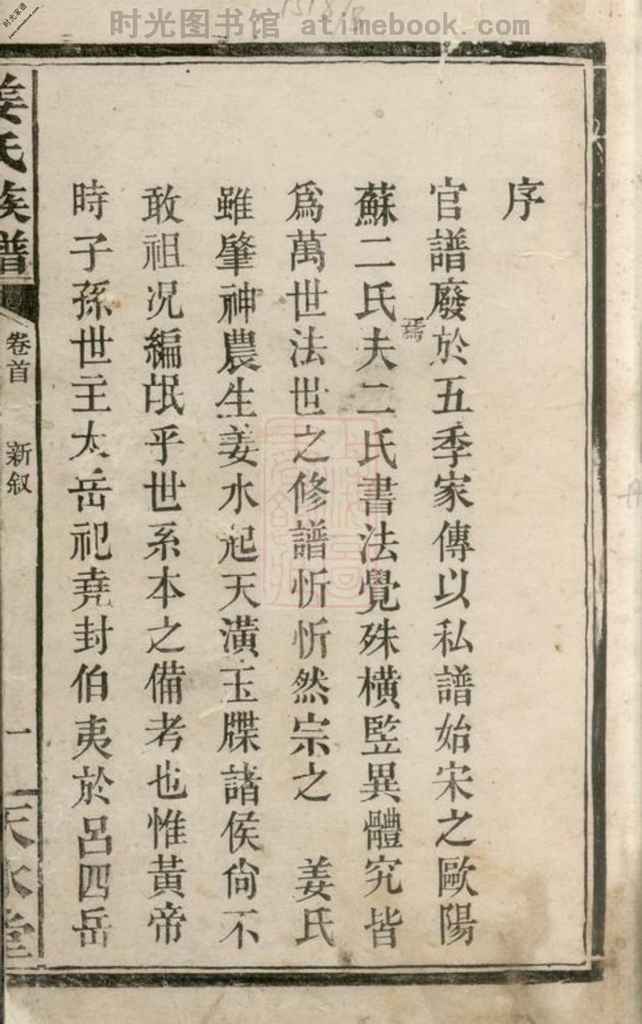 时光图书馆 atimebook.com
序
官譜廢於五季家傳以私譜始宋之歐陽
蘇二氏夫二氏書法覺殊橫監異體究皆
焉
為萬世法世之修譜忻忻然宗之 姜氏
雖肇神農生姜水起天潢玉牒諸侯尙不
敢祖况編氓乎世系本之備考也惟黃帝
時子孫世主太岳祀堯封伯夷於呂四岳
姜氏族譜 卷首 新叙 一 天水堂